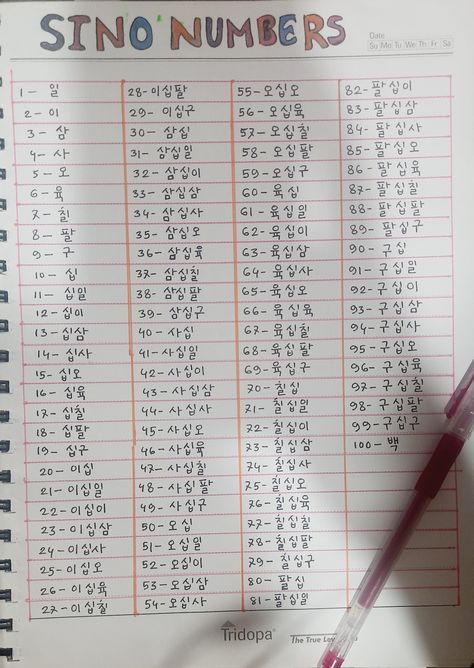 SINO NUMBERS
Date
Su Mo Tu We Th Fr Sa
1 - 일
2 - 이
3 - 삼
4 - 사
5 - 오
6 - 육
7 - 칠
8 - 팔
9 - 구
10 - 십
11 - 십일
12 - 십이
13 - 십삼
14 - 십사
15 - 십오
16 - 십육
17 - 십칠
18 - 십팔
19 - 십구
20 - 이십
21 - 이십일
22 - 이십이
23 - 이십삼
24 - 이십사
25 - 이십오
26 - 이십육
27 - 이십칠
28 - 이십팔
29 - 이십구
30 - 삼십
31 - 삼십일
32 - 삼십이
33 - 삼십삼
34 - 삼십사
35 - 삼십오
36 - 삼십육
37 - 삼십칠
38 - 삼십팔
39 - 삼십구
40 - 사십
41 - 사십일
42 - 사십이
43 - 사십삼
44 - 사십사
45 - 사십오
46 - 사십육
47 - 사십칠
48 - 사십팔
49 - 사십구
50 - 오십
51 - 오십일
52 - 오십이
53 - 오십삼
54 - 오십사
55 - 오십오
56 - 오십육
57 - 오십칠
58 - 오십팔
59 - 오십구
60 - 육십
61 - 육십일
62 - 육십이
63 - 육십삼
64 - 육십사
65 - 육십오
66 - 육십육
67 - 육십칠
68 - 육십팔
69 - 육십구
70 - 칠십
71 - 칠십일
72 - 칠십이
73 - 칠십삼
74 - 칠십사
75 - 칠십오
76 - 칠십육
77 - 칠십칠
78 - 칠십팔
79 - 칠십구
80 - 팔십
81 - 팔십일
82 - 팔십이
83 - 팔십삼
84 - 팔십사
85 - 팔십오
86 - 팔십육
87 - 팔십칠
88 - 팔십팔
89 - 팔십구
90 - 구십
91 - 구십일
92 - 구십이
93 - 구십삼
94 - 구십사
95 - 구십오
96 - 구십육
97 - 구십칠
98 - 구십팔
99 - 구십구
100 - 백
Tridopa
The True